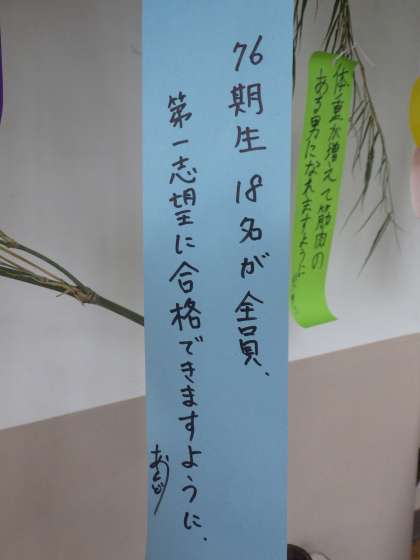 76期生 18名が全員、
第一志望に合格できますように、
体重が増えて筋肉の
ある男になれますように